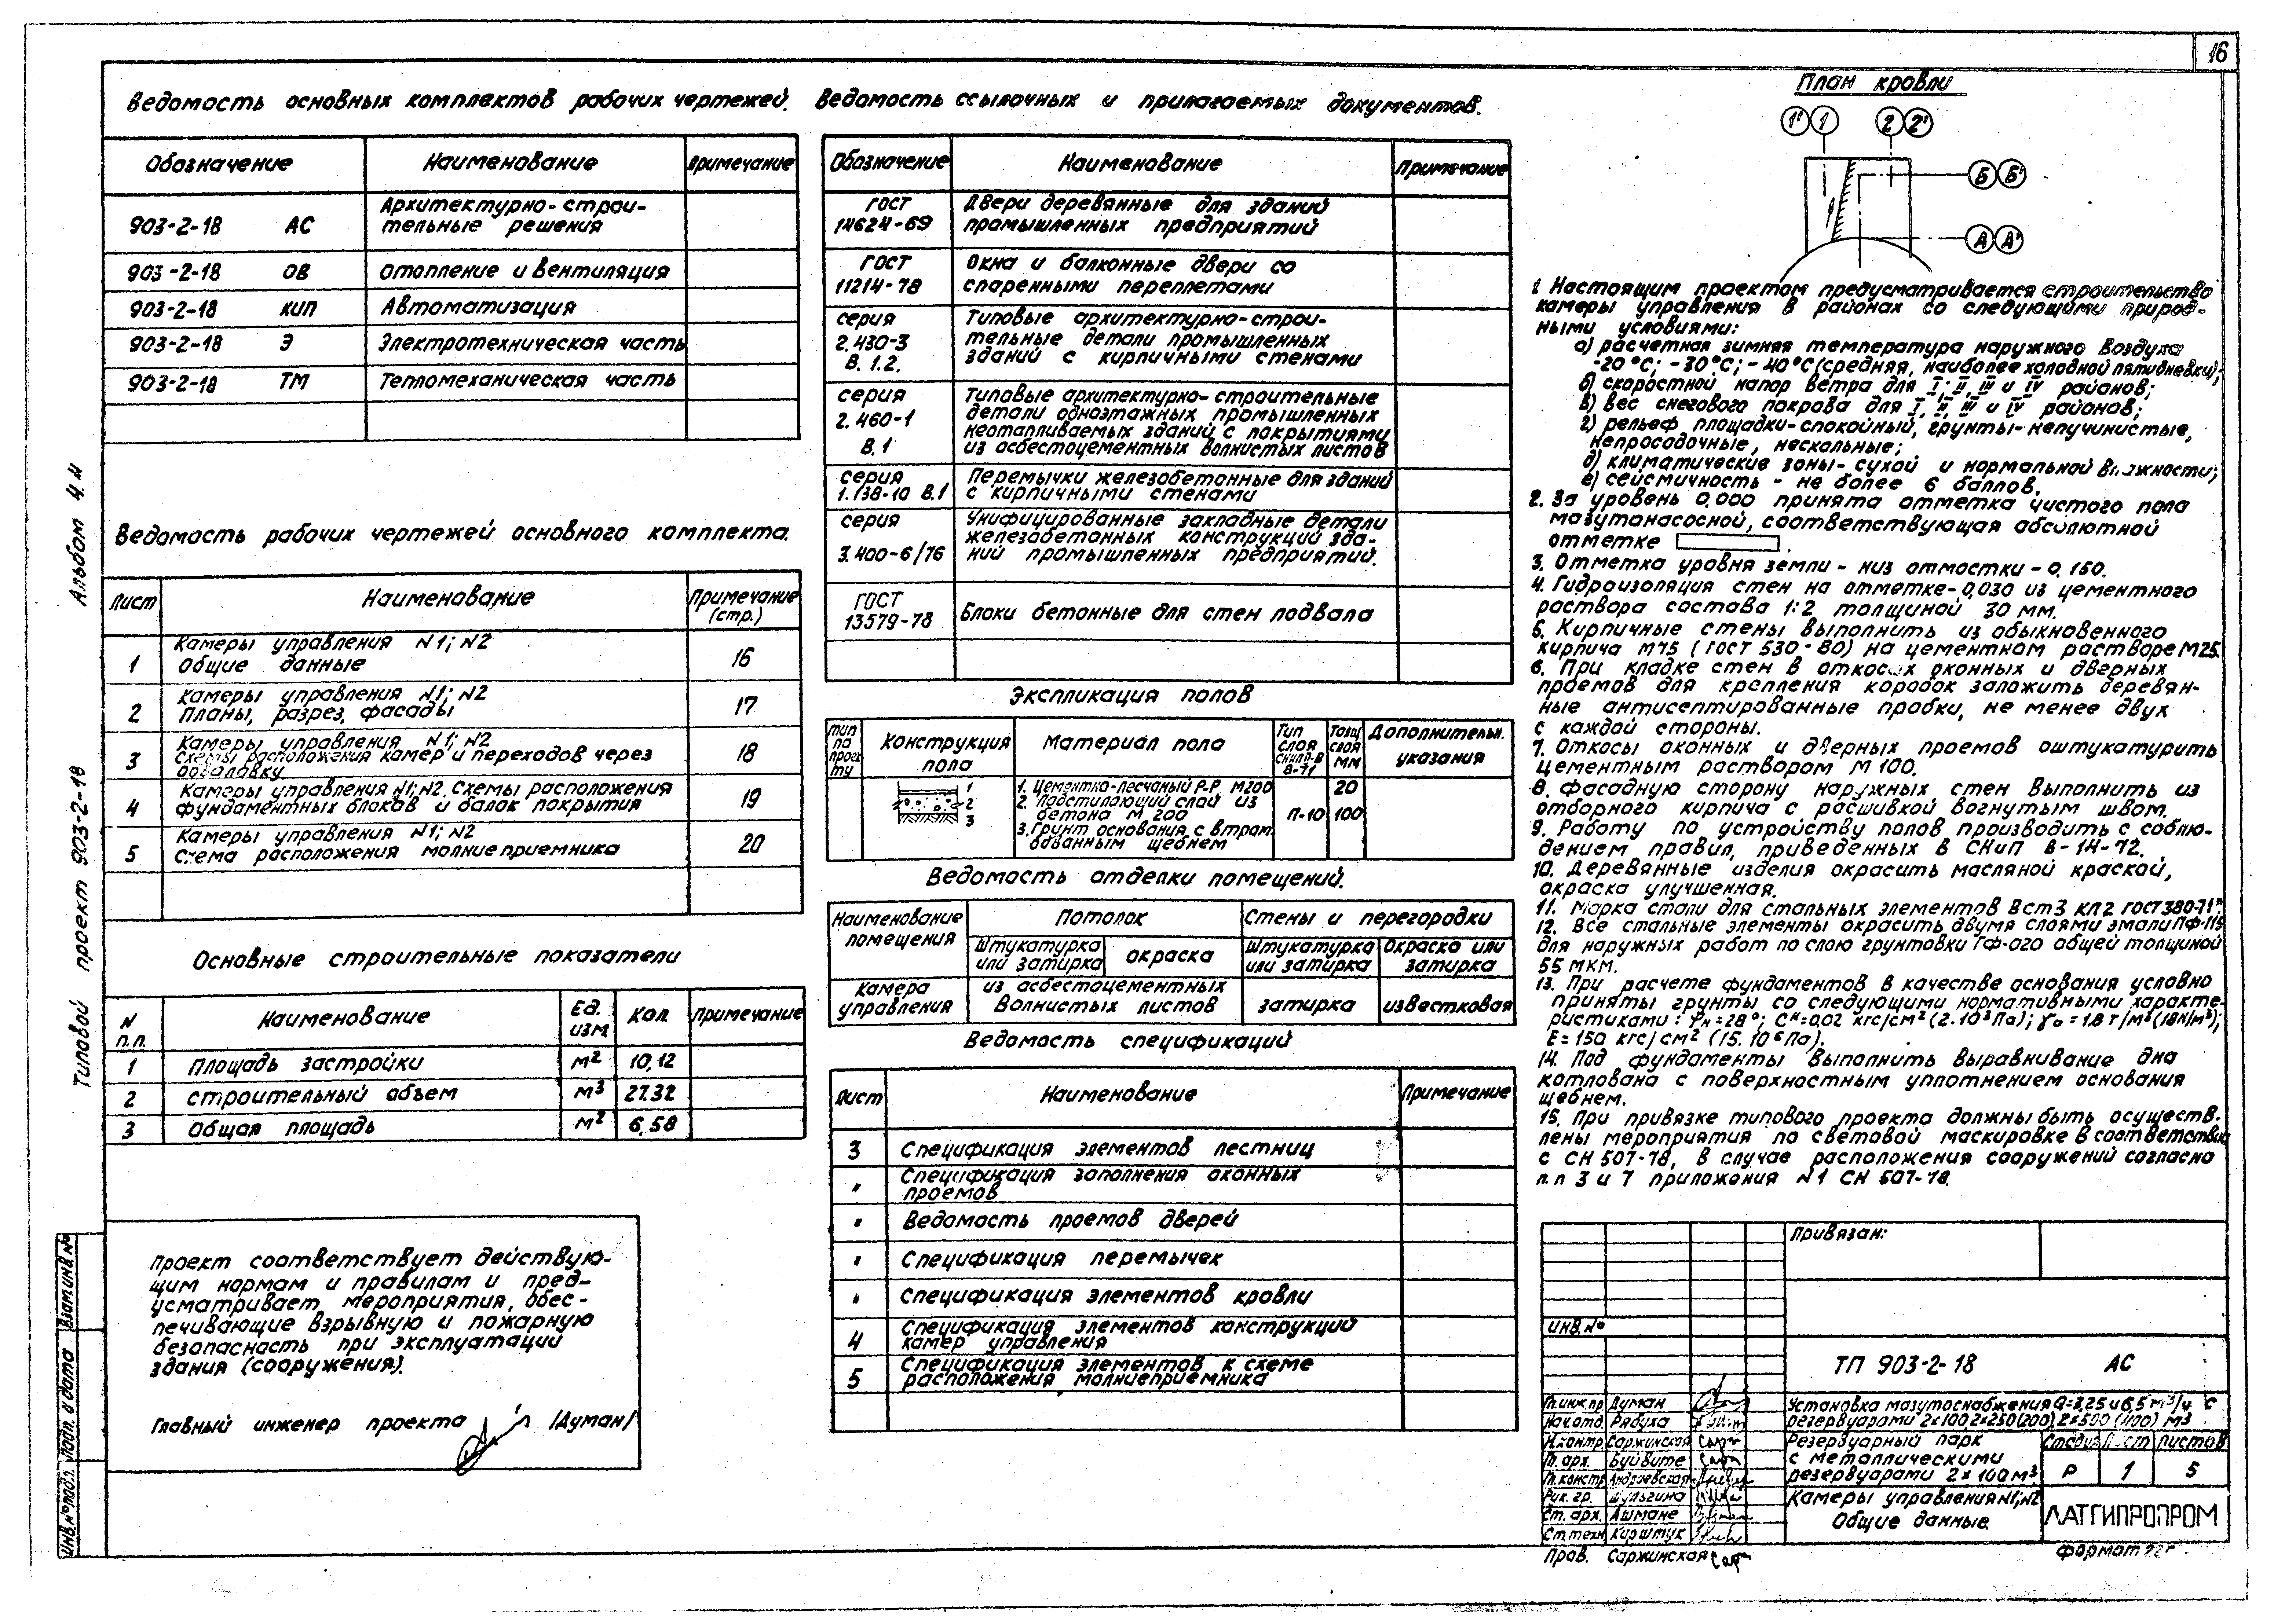 16
Альбом 4.II
Типовой проект 903-2-18
Ведомость основных комплектов рабочих чертежей.
Обозначение Наименование Примечание
903-2-18 АС Архитектурно-строи-
тельные решения
903-2-18 ОВ Отопление и вентиляция
903-2-18 КИП Автоматизация
903-2-18 Э Электротехническая часть
903-2-18 ТМ Тепломеханическая часть
Ведомость рабочих чертежей основного комплекта.
Лист Наименование Примечание
(стр.)
1 Камеры управления N1; N2
Общие данные 16
2 Камеры управления N1; N2
Планы, разрез, фасады 17
3 Камеры управления N1; N2
Схемы расположения камер и переходов через
обваловку 18
4 Камеры управления N1; N2. Схемы расположения
фундаментных блоков и балок покрытия 19
5 Камеры управления N1; N2
Схема расположения молниеприемника 20
Основные строительные показатели
N
п.п. Наименование Ед.
изм Кол Примечание
1 Площадь застройки м² 10,12
2 Строительный объем м³ 27.32
3 Общая площадь м² 6,58
Проект соответствует действую-
щим нормам и правилам и пред-
усматривает мероприятия, обес-
печивающие взрывную и пожарную
безопасность при эксплуатации
здания (сооружения).
Главный инженер проекта /Думан/
Ведомость ссылочных и прилагаемых документов.
Обозначение Наименование Примечание
ГОСТ
14624-69 Двери деревянные для зданий
промышленных предприятий
ГОСТ
11214-78 Окна и балконные двери со
спаренными переплетами
серия
2.430-3
В. 1.2. Типовые архитектурно-строи-
тельные детали промышленных
зданий с кирпичными стенами
серия
2.460-1
В.1 Типовые архитектурно-строительные
детали одноэтажных промышленных
неотапливаемых зданий с покрытиями
из асбестоцементных волнистых листов
серия
1.138-10 В.1 Перемычки железобетонные для зданий
с кирпичными стенами
серия
3.400-6/76 Унифицированные закладные детали
железобетонных конструкций зда-
ний промышленных предприятий.
ГОСТ
13579-78 Блоки бетонные для стен подвала
Экспликация полов
Тип
по
проек
ту Конструкция
пола Материал пола Тип
слоя
СНиП II-В
8-71 Толщ
слоя
мм Дополнительн.
указания
1
2
3
1. Цементно-песчаный Р-Р М200 20
2. Подстилающий слой из
бетона М 200 П-10 100
3. Грунт основания с втрам
бованным щебнем
Ведомость отделки помещений.
Наименование
помещения Потолок Стены и перегородки
Штукатурка
или затирка окраска Штукатурка
или затирка Окраска или
затирка
Камера
управления из асбестоцементных
волнистых листов затирка известковая
Ведомость спецификаций
Лист Наименование Примечание
3 Спецификация элементов лестниц
" Спецификация заполнения оконных
проемов
" Ведомость проемов дверей
" Спецификация перемычек
" Спецификация элементов кровли
4 Спецификация элементов конструкций
камер управления
5 Спецификация элементов к схеме
расположения молниеприемника
План кровли
1' 1 2 2'
Б Б'
А А'
1. Настоящим проектом предусматривается строительство
камеры управления в районах со следующими природ-
ными условиями:
а) расчетная зимняя температура наружного воздуха
-20°С; -30°С; -40°С (средняя, наиболее холодной пятидневки);
б) скоростной напор ветра для I, II, III и IV районов;
в) вес снегового покрова для I, II, III и IV районов;
г) рельеф площадки-спокойный, грунты-непучинистые,
непросадочные, нескольные;
д) климатические зоны-сухой и нормальной влажности;
е) сейсмичность - не более 6 баллов.
2. За уровень 0,000 принята отметка чистого пола
мазутонасосной, соответствующая абсолютной
отметке .
3. Отметка уровня земли - низ отмостки - 0,150.
4. Гидроизоляция стен на отметке-0,030 из цементного
раствора состава 1:2 толщиной 30 мм.
5. Кирпичные стены выполнить из обыкновенного
кирпича М75 (ГОСТ 530-80) на цементном растворе М25.
6. При кладке стен в откосах оконных и дверных
проемов для крепления коробок заложить деревян-
ные антисептированные пробки, не менее двух
с каждой стороны.
7. Откосы оконных и дверных проемов оштукатурить
цементным раствором М 100.
8. Фасадную сторону наружных стен выполнить из
отборного кирпича с расшивкой вогнутым швом.
9. Работу по устройству полов производить с соблю-
дением правил, приведенных в СНиП В-14-72.
10. Деревянные изделия окрасить масляной краской,
окраска улучшенная.
11. Марка стали для стальных элементов ВСт3 кп2 ГОСТ 380-71*
12. Все стальные элементы окрасить двумя слоями эмали ПФ-115
для наружных работ по слою грунтовки ГФ-020 общей толщиной
55 мкм.
13. При расчете фундаментов в качестве основания условно
приняты грунты со следующими нормативными характе-
ристиками: φн=28°; Сн=0,02 кгс/см² (2.10³Па); γо=1,8 т/м³ (18н/м³);
Е=150 кгс/см² (15.10⁶Па).
14. Под фундаменты выполнить выравнивание дна
котлована с поверхностным уплотнением основания
щебнем.
15. При привязке типового проекта должны быть осуществ.
лены мероприятия по световой маскировке в соответствии
с СН 507-78, в случае расположения сооружений согласно
п.п 3 и 7 приложения N1 СН 507-78.
Привязан:
Инв. №
ТП 903-2-18 АС
Гл.инж.пр Думан
Нач.отд. Рябуха
Н.контр Саржинская
Гл. арх. Буйвите
Гл.констр Андриевская
Рук. гр. Шульгина
Ст. арх. Ашмане
Ст.техн Кирштук
Пров. Саржинская
Установка мазутоснабжения Q=3,25 и 6,5 м³/ч с
резервуарами 2х100, 2х250(200), 2х500 (400) м³
Резервуарный парк
с металлическими
резервуарами 2х100м³
Стадия Лист Листов
Р 1 5
Камеры управления N1; N2
Общие данные.
ЛАТГИПРОПРОМ
формат 22г
Инв.№ подл. Подп. и дата Взам инв. №